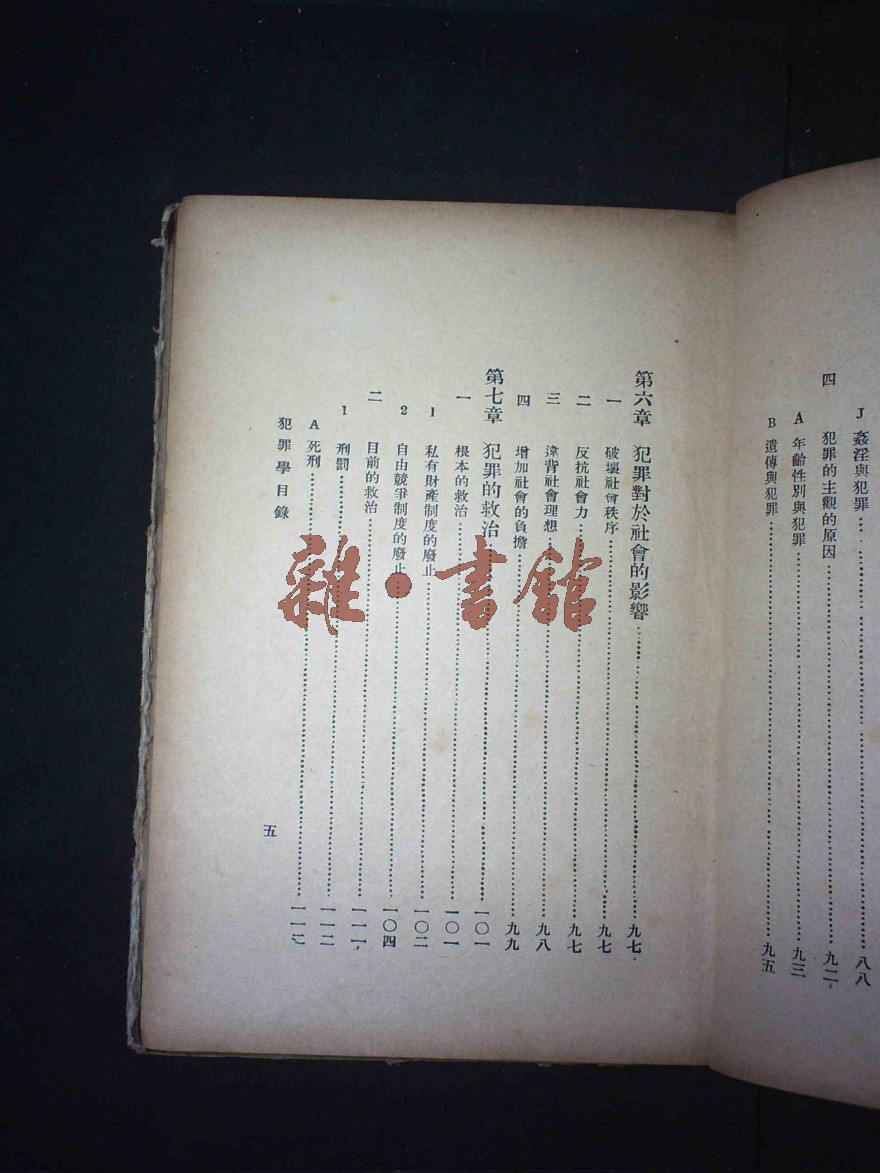 J 姦淫與犯罪……八八
四 犯罪的主觀的原因……九二
A 年齡性別與犯罪……九三
B 遺傳與犯罪……九五
第六章 犯罪對於社會的影響……九七
一 破壞社會秩序……九七
二 反抗社會力……九七
三 違背社會理想……九八
四 增加社會的負擔……九九
第七章 犯罪的救治……一〇一
一 根本的救治……一〇一
1 私有財產制度的廢止……一〇二
2 自由競爭制度的廢止……一〇四
二 目前的救治……一一一
1 刑罰……一一二
A 死刑……
犯罪學目錄
五
雜·書館